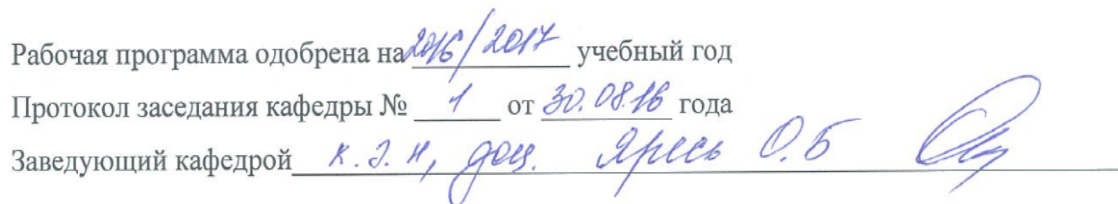 Рабочая программа одобрена на 2016/2017 учебный год
Протокол заседания кафедры № 1 от 30.08.16 года
Заведующий кафедрой к.э.н, доц. Яресь О.Б